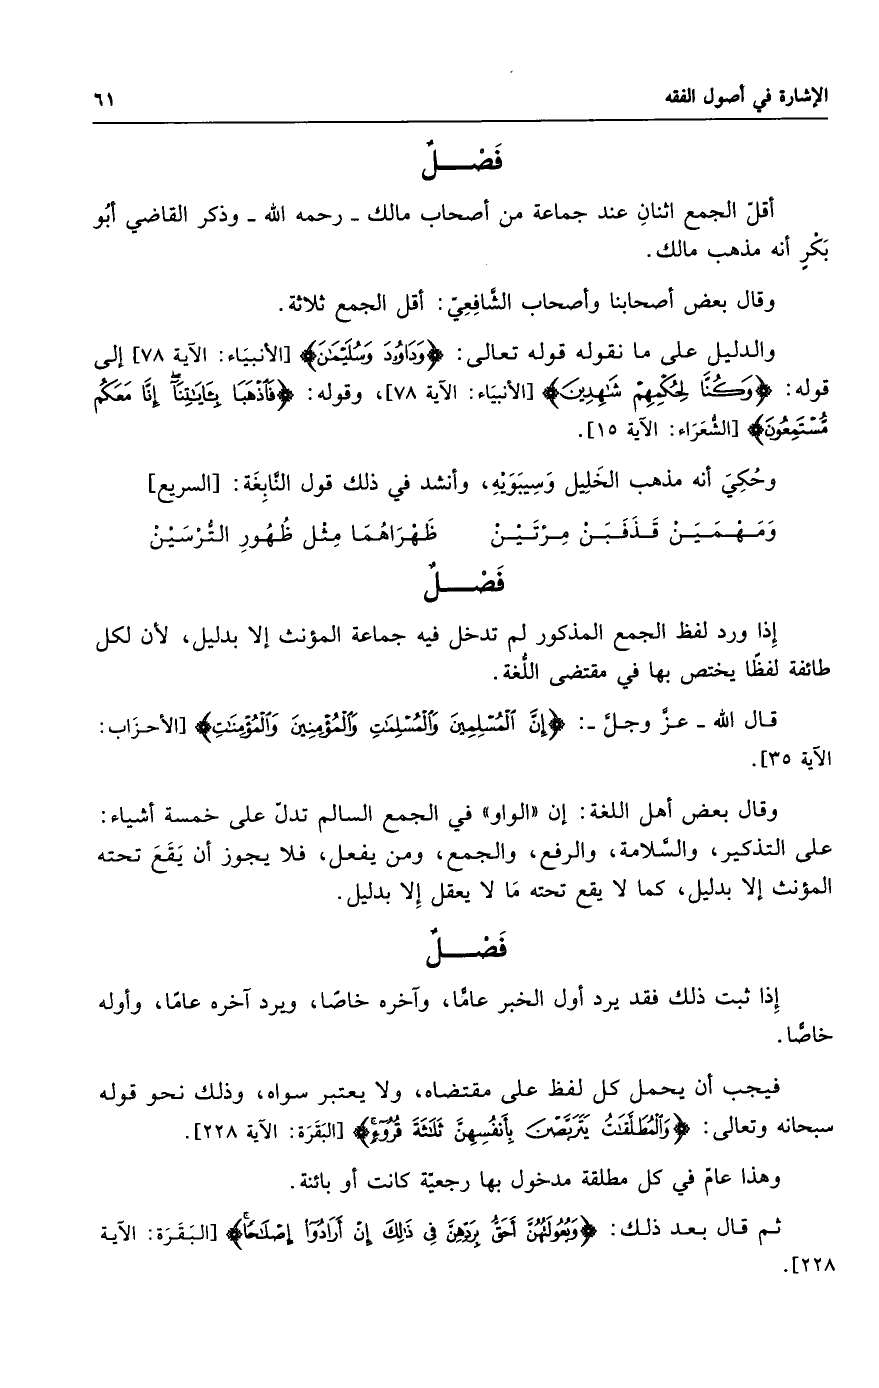 الإشارة في أصول الفقه ٦١
فَصْـــلٌ
أقلّ الجمع اثنانِ عند جماعة من أصحاب مالك ـ رحمه الله ـ وذكر القاضي أبُو
بَكْرٍ أنه مذهب مالك.
وقال بعض أصحابنا وأصحاب الشَّافِعِيّ: أقل الجمع ثلاثة.
والدليل على ما نقوله قوله تعالى: ﴿وَدَاوُۥدَ وَسُلَيْمَـٰنَ﴾ [الأنبيَاء: الآية ٧٨] إلى
قوله: ﴿وَكُنَّا لِحُكْمِهِمْ شَـٰهِدِينَ﴾ [الأنبيَاء: الآية ٧٨]، وقوله: ﴿فَٱذْهَبَا بِـَٔايَـٰتِنَآ ۖ إِنَّا مَعَكُم
مُّسْتَمِعُونَ﴾ [الشُّعَرَاء: الآية ١٥].
وحُكِيَ أنه مذهب الخَلِيل وَسِيبَوَيْهِ، وأنشد في ذلك قول النَّابِغَة: [السريع]
وَمَـهْـمَـيَـنْ قَـذَفَـيَـنْ مِـرْتَـيْـنْ ظَهْرَاهُمَا مِثْل ظُهُورِ التُرْسَيْنْ
فَصْـــلٌ
إِذا ورد لفظ الجمع المذكور لم تدخل فيه جماعة المؤنث إلا بدليل، لأن لكل
طائفة لفظًا يختص بها في مقتضى اللُّغة.
قال الله ـ عزَّ وجلَّ ـ: ﴿إِنَّ ٱلْمُسْلِمِينَ وَٱلْمُسْلِمَـٰتِ وَٱلْمُؤْمِنِينَ وَٱلْمُؤْمِنَـٰتِ﴾ [الأحزَاب:
الآية ٣٥].
وقال بعض أهل اللغة: إن «الواو» في الجمع السالم تدلّ على خمسة أشياء:
على التذكير، والسَّلامة، والرفع، والجمع، ومن يفعل، فلا يجوز أن يَقَعَ تحته
المؤنث إلا بدليل، كما لا يقع تحته مَا لا يعقل إِلا بدليل.
فَصْـــلٌ
إِذا ثبت ذلك فقد يرد أول الخبر عامًّا، وآخره خاصًا، ويرد آخره عامًا، وأوله
خاصًّا.
فيجب أن يحمل كل لفظ على مقتضاه، ولا يعتبر سواه، وذلك نحو قوله
سبحانه وتعالى: ﴿وَٱلْمُطَلَّقَـٰتُ يَتَرَبَّصْنَ بِأَنفُسِهِنَّ ثَلَـٰثَةَ قُرُوٓءٍ ۚ﴾ [البَقَرَة: الآية ٢٢٨].
وهذا عامّ في كل مطلقة مدخول بها رجعيّة كانت أو بائنة.
ثم قال بعد ذلك: ﴿وَبُعُولَتُهُنَّ أَحَقُّ بِرَدِّهِنَّ فِى ذَٰلِكَ إِنْ أَرَادُوٓا۟ إِصْلَـٰحًا ۚ﴾ [البَقَرَة: الآية
٢٢٨].